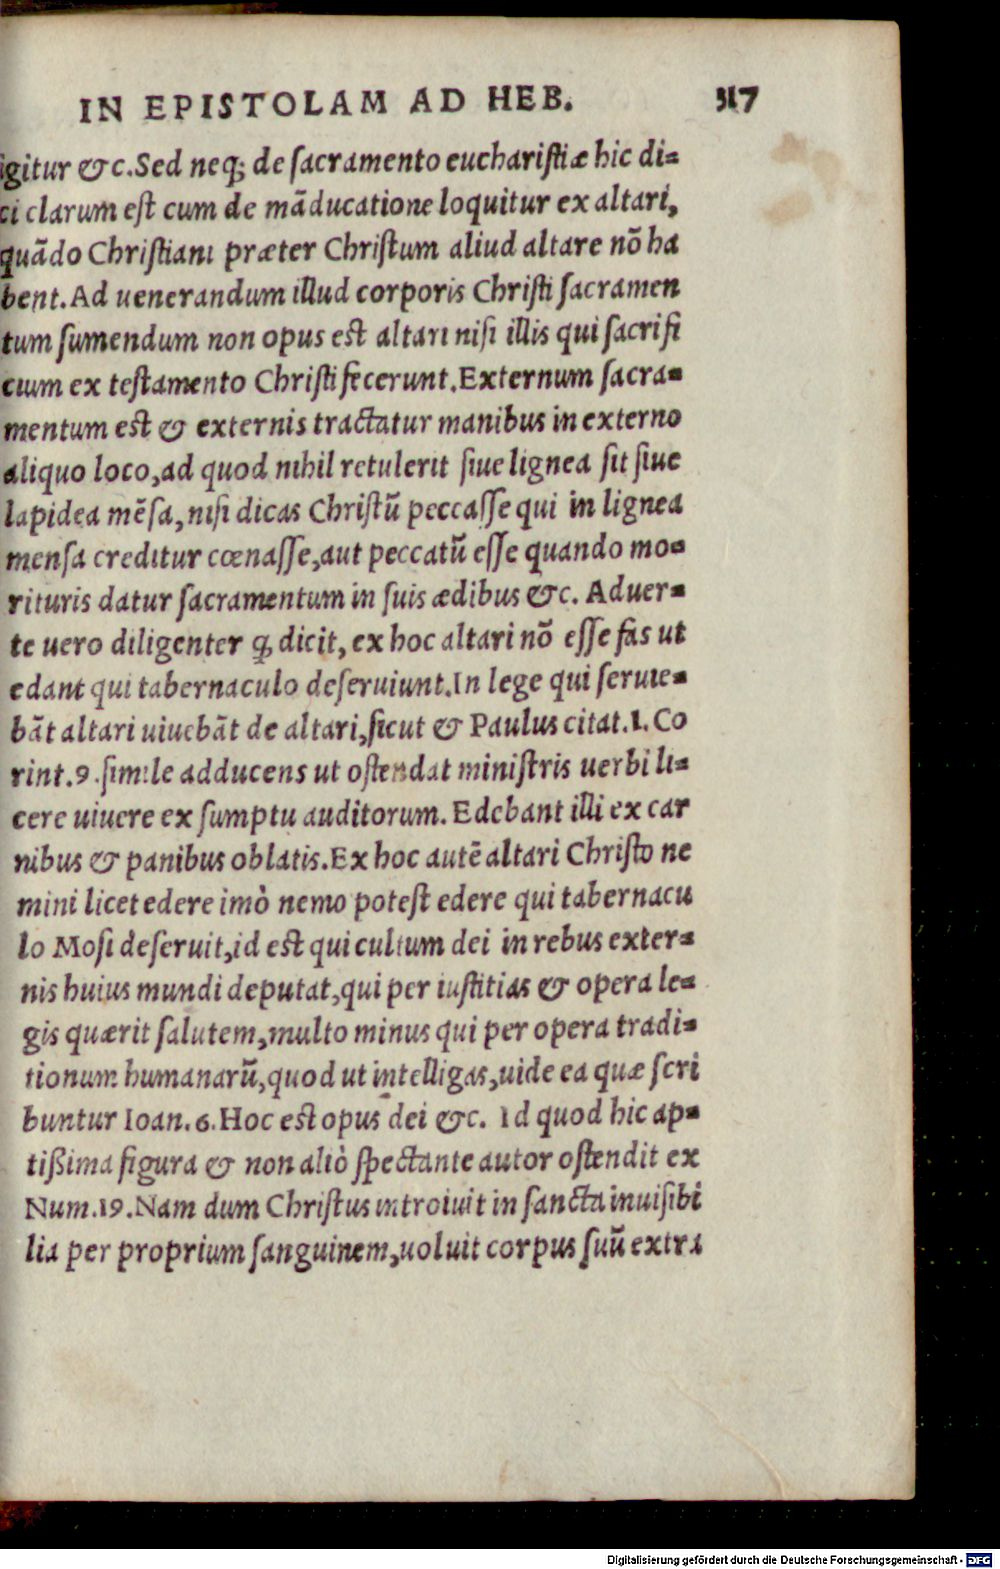 IN EPISTOLAM AD HEB. 317
igitur &c. Sed neq; de ſacramento euchariſtiæ hic di=
ci clarum eſt cum de mãducatione loquitur ex altari,
quãdo Chriſtiani præter Chriſtum aliud altare nõ ha
bent. Ad uenerandum illud corporis Chriſti ſacramen
tum ſumendum non opus eſt altari niſi illis qui ſacrifi
cium ex teſtamento Chriſti fecerunt. Externum ſacra=
mentum eſt & externis tractatur manibus in externo
aliquo loco, ad quod nihil retulerit ſiue lignea ſit ſiue
lapidea mẽſa, niſi dicas Chriſtũ peccaſſe qui in lignea
menſa creditur cœnaſſe, aut peccatũ eſſe quando mo=
rituris datur ſacramentum in ſuis ædibus &c. Aduer=
te uero diligenter ꝙ dicit, ex hoc altari nõ eſſe fas ut
edant qui tabernaculo deſeruiunt. In lege qui ſeruie=
bãt altari uiuebãt de altari, ſicut & Paulus citat. 1. Co
rint. 9. ſimile adducens ut oſtendat miniſtris uerbi li=
cere uiuere ex ſumptu auditorum. Edebant illi ex car
nibus & panibus oblatis. Ex hoc autẽ altari Chriſto ne
mini licet edere imò nemo poteſt edere qui tabernacu
lo Moſi deſeruit, id eſt qui cultum dei in rebus exter=
nis huius mundi deputat, qui per iuſtitias & opera le=
gis quærit ſalutem, multo minus qui per opera tradi=
tionum humanarũ, quod ut intelligas, uide ea quæ ſcri
buntur Ioan. 6. Hoc eſt opus dei &c. Id quod hic ap=
tißima figura & non aliò ſpectante autor oſtendit ex
Num. 19. Nam dum Chriſtus introiuit in ſancta inuiſibi
lia per proprium ſanguinem, uoluit corpus ſuũ extra
Digitalisierung gefördert durch die Deutsche Forschungsgemeinschaft - DFG